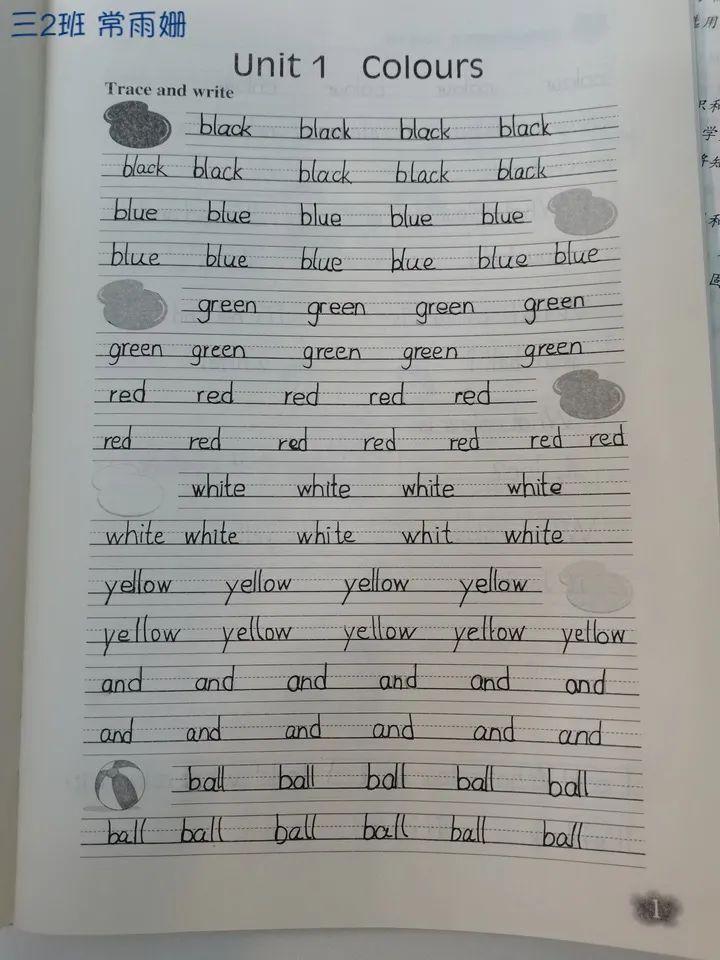 三2班 常雨姗
Unit 1 Colours
Trace and write
black black black black
black black black black black
blue blue blue blue blue
blue blue blue blue blue blue
green green green green
green green green green green
red red red red red
red red red red red red red
white white white white
white white white whit white
yellow yellow yellow yellow
yellow yellow yellow yellow yellow
and and and and and and
and and and and and and
ball ball ball ball ball
ball ball ball ball ball ball
1